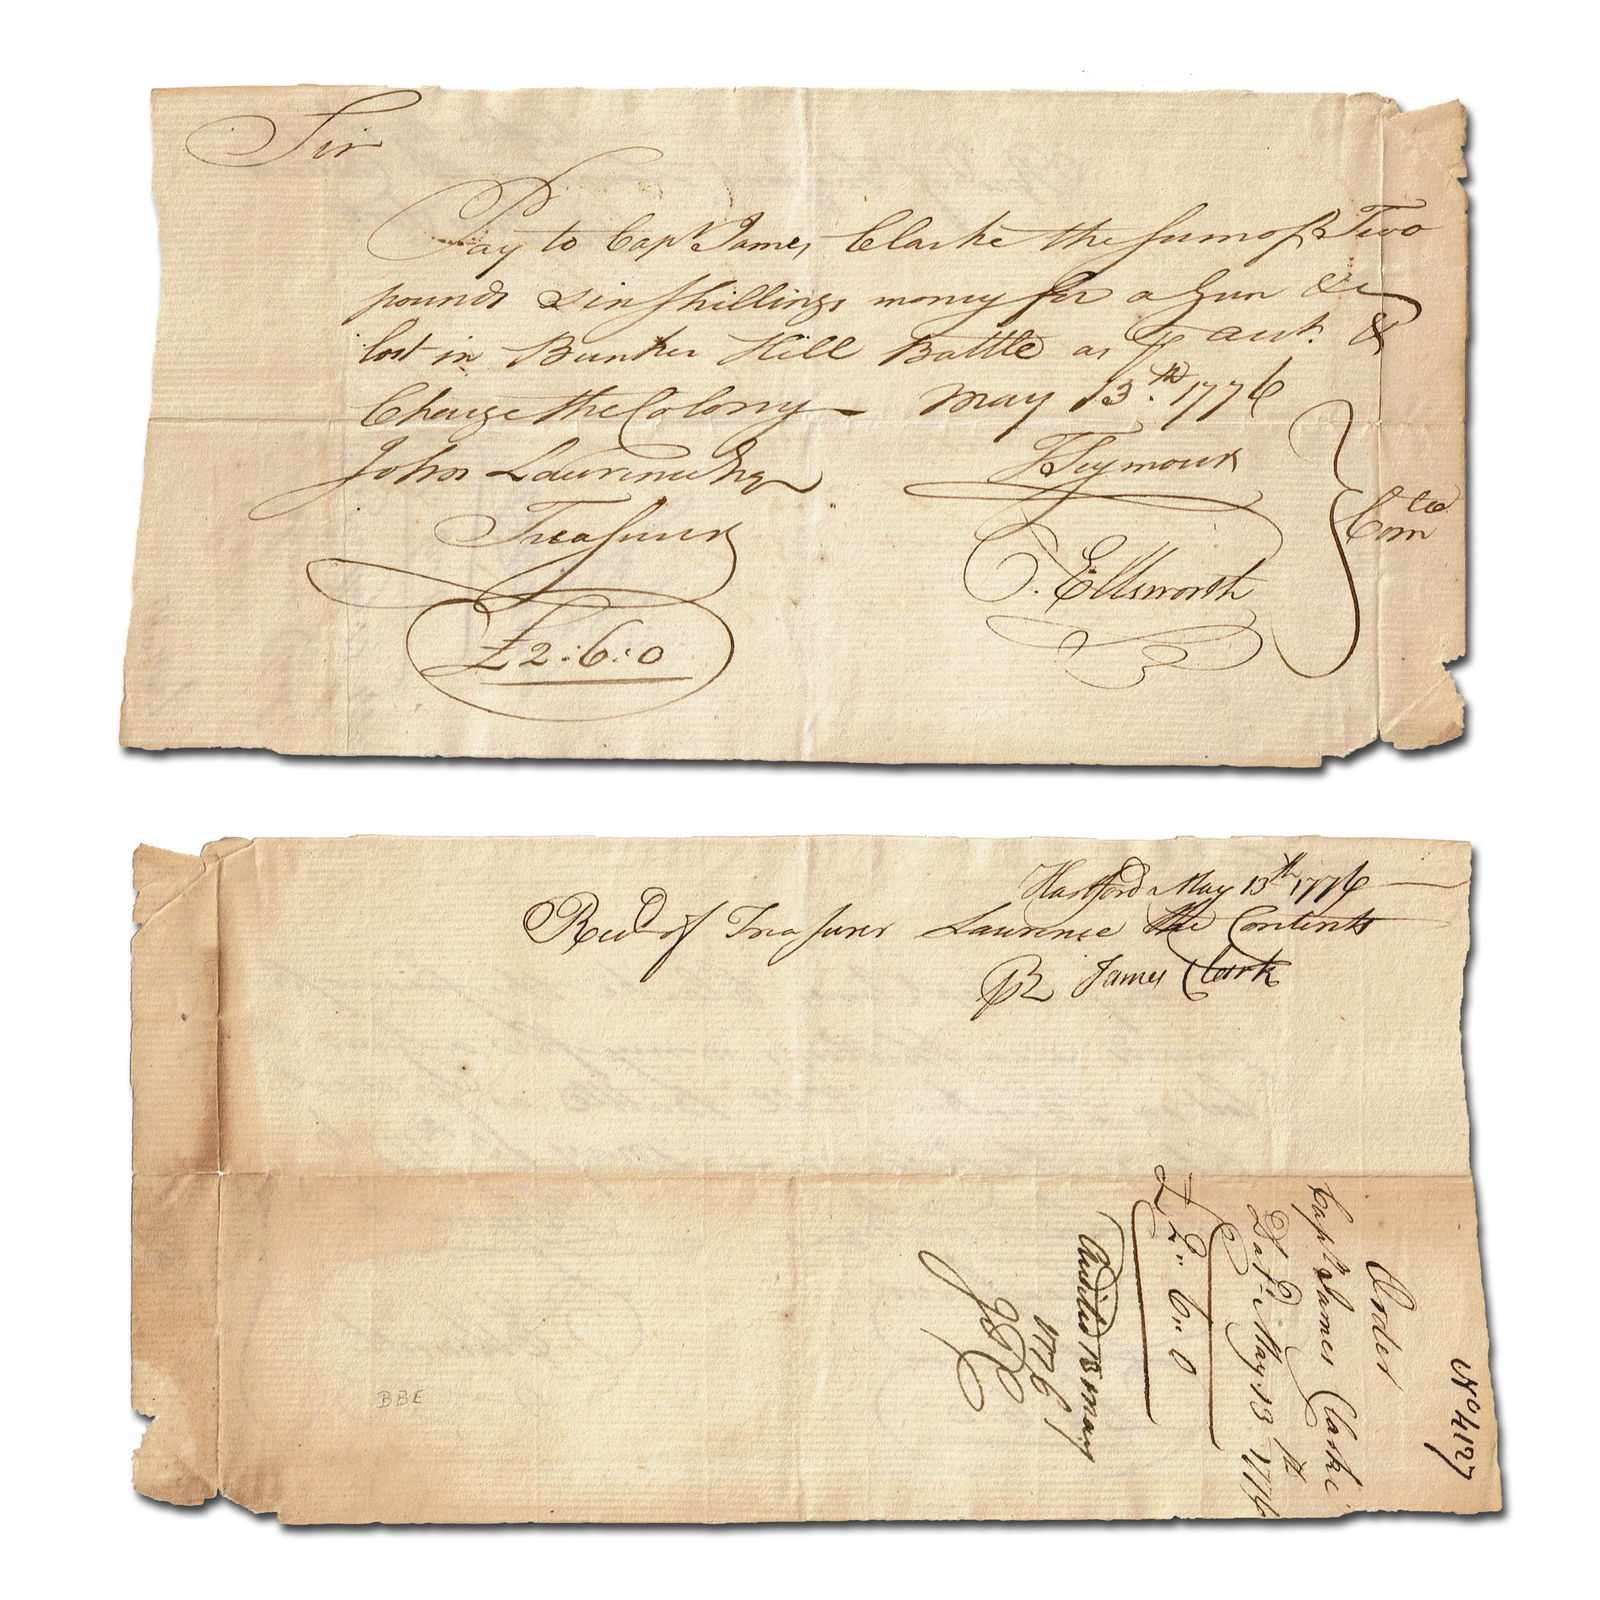 Sir
Pay to Capt James Clarke the sum of Two
pounds six shillings money for a Gun &c
lost in Bunker Hill Battle as acct. &
Charge the Colony – May 13.th 1776
John Lawrence Esqr
Treasurer
£2:6:0
T Seymour
O. Ellsworth
Comtee
Hartford May 13th 1776
Recd of Treasurer Lawrence the Contents
Pr James Clark
No 4127
Order
Capt James Clarke
Dat. May. 13th 1776
£2..6..0
Audited 13 May
1776